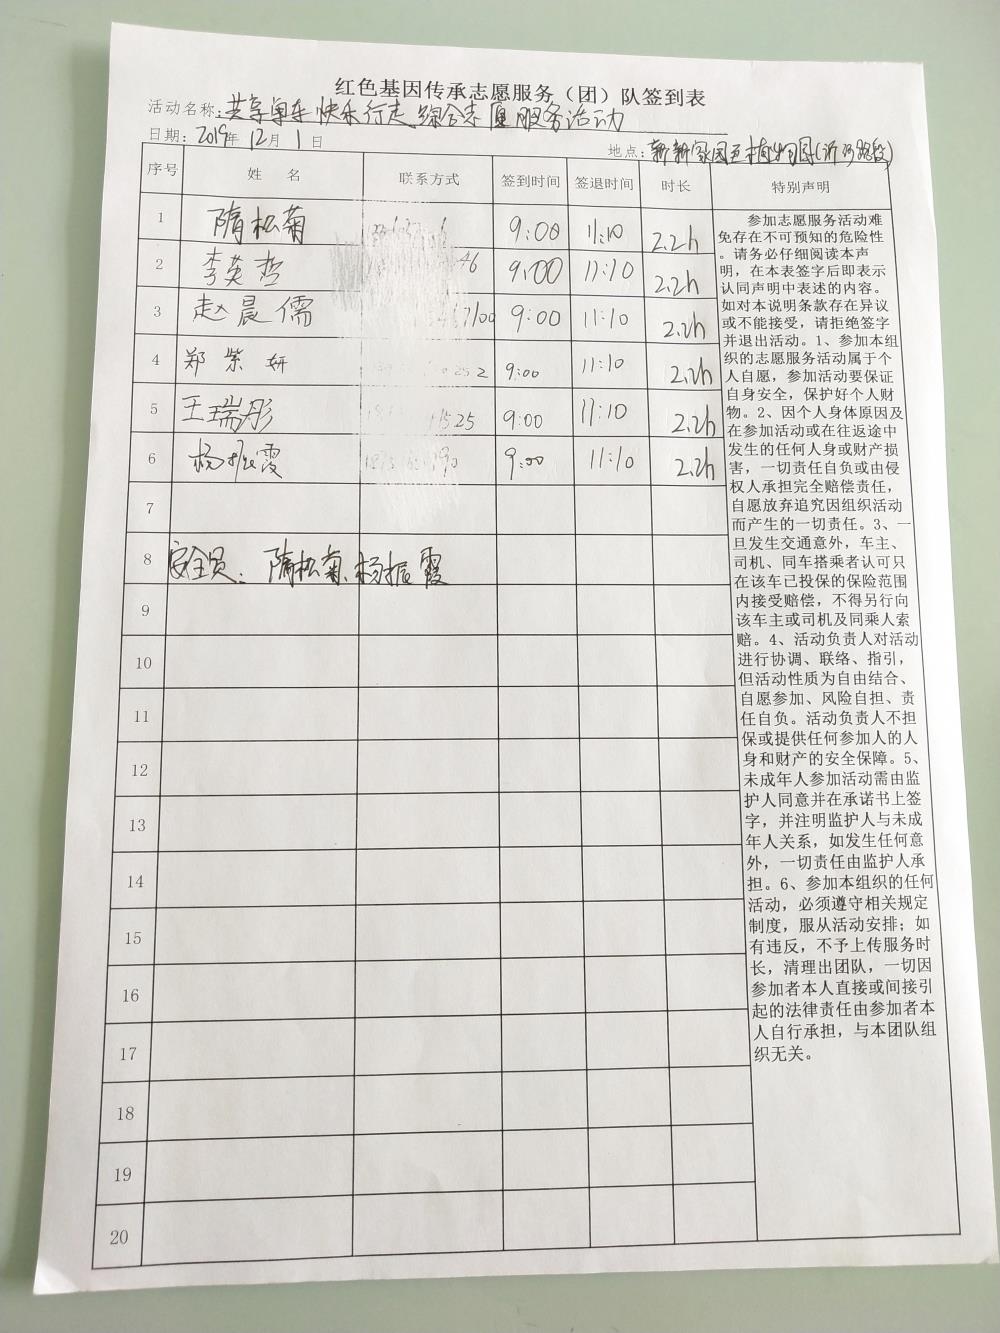 红色基因传承志愿服务（团）队签到表
活动名称：共享单车 快乐行走 综合志愿服务活动
日期：2019年 12月 1日
地点：新新家园至植物园(沂河路段)
序号 姓 名 联系方式 签到时间 签退时间 时长 特别声明
1 隋松菊 9:00 11:10 2.2h
2 李英哲 46 9:00 11:10 2.2h
3 赵晨儒 9:00 11:10 2.2h
4 郑紫妍 2 9:00 11:10 2.2h
5 王瑞彤 1525 9:00 11:10 2.2h
6 杨振霞 90 9:00 11:10 2.2h
7
8 安全员：隋松菊、杨振霞
9
10
11
12
13
14
15
16
17
18
19
20
参加志愿服务活动难
免存在不可预知的危险性
。请务必仔细阅读本声
明，在本表签字后即表示
认同声明中表述的内容。
如对本说明条款存在异议
或不能接受，请拒绝签字
并退出活动。1、参加本组
织的志愿服务活动属于个
人自愿，参加活动要保证
自身安全，保护好个人财
物。2、因个人身体原因及
在参加活动或在往返途中
发生的任何人身或财产损
害，一切责任自负或由侵
权人承担完全赔偿责任，
自愿放弃追究因组织活动
而产生的一切责任。3、一
旦发生交通意外，车主、
司机、同车搭乘者认可只
在该车已投保的保险范围
内接受赔偿，不得另行向
该车主或司机及同乘人索
赔。4、活动负责人对活动
进行协调、联络、指引，
但活动性质为自由结合、
自愿参加、风险自担、责
任自负。活动负责人不担
保或提供任何参加人的人
身和财产的安全保障。5、
未成年人参加活动需由监
护人同意并在承诺书上签
字，并注明监护人与未成
年人关系，如发生任何意
外，一切责任由监护人承
担。6、参加本组织的任何
活动，必须遵守相关规定
制度，服从活动安排；如
有违反，不予上传服务时
长，清理出团队，一切因
参加者本人直接或间接引
起的法律责任由参加者本
人自行承担，与本团队组
织无关。